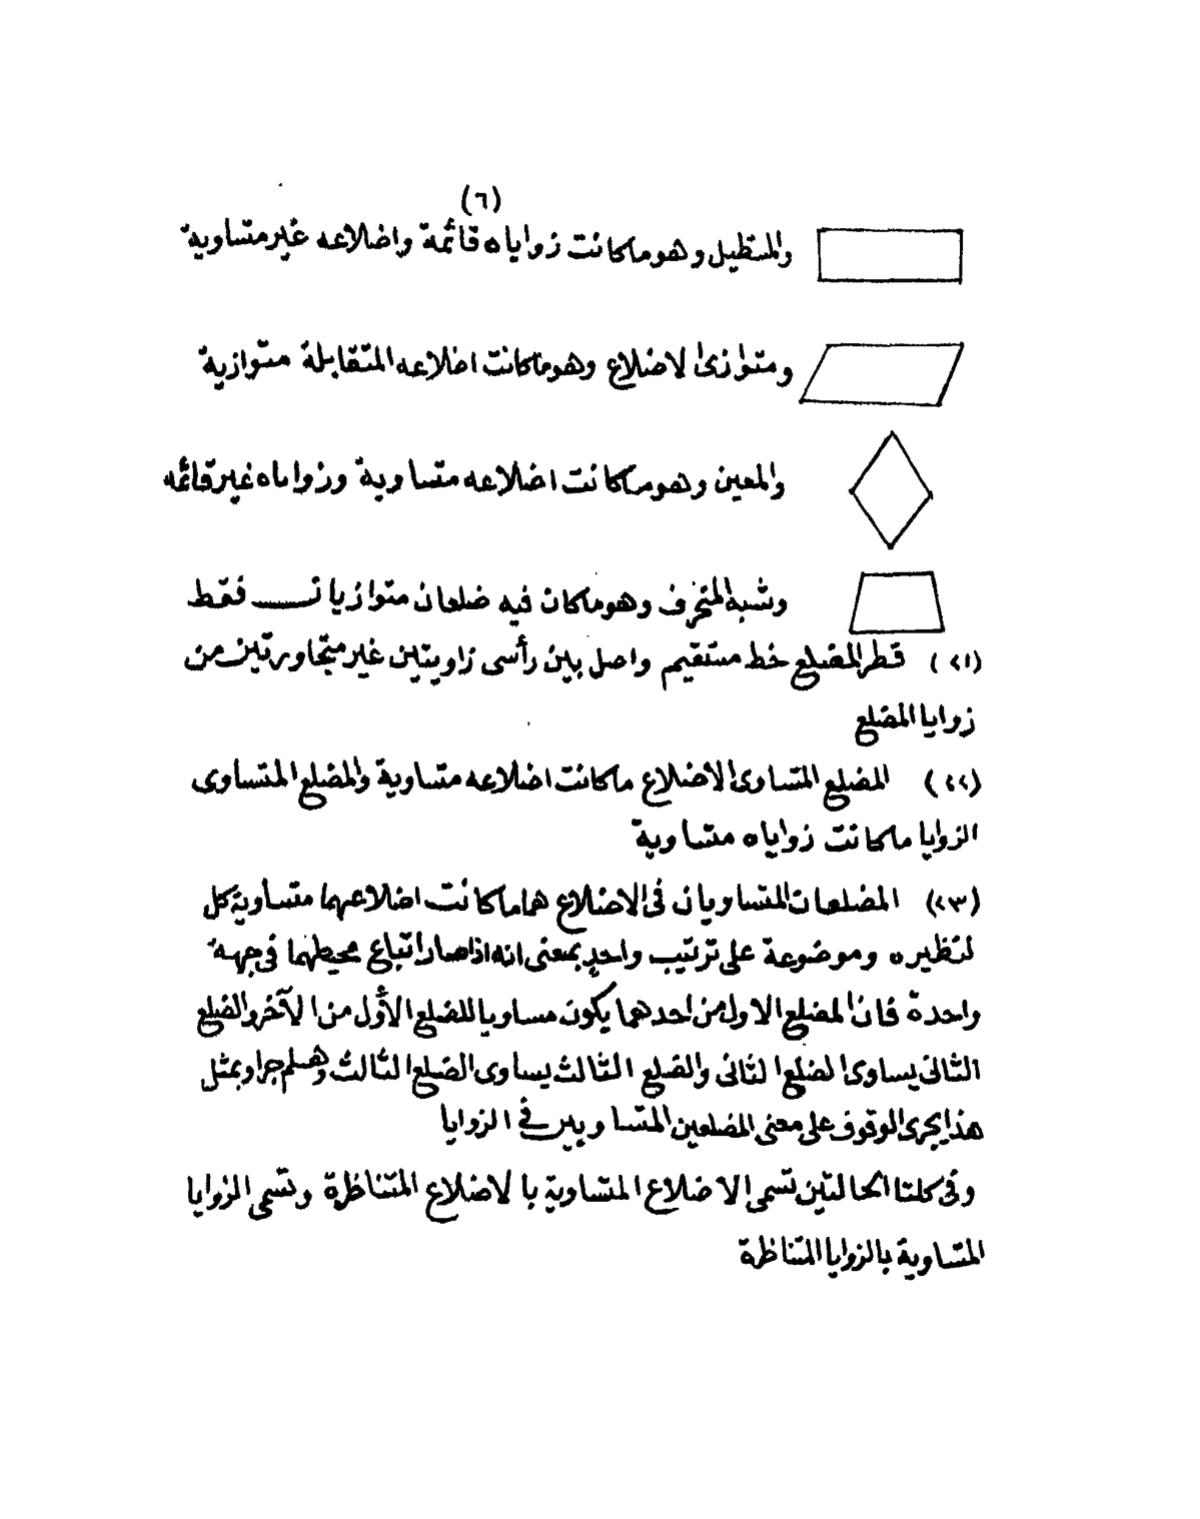 (٦)
والمستطيل وهو ما كانت زواياه قائمة واضلاعه غير متساوية
ومتوازى الاضلاع وهو ما كانت اضلاعه المتقابلة متوازية
والمعين وهو ما كانت اضلاعه متساوية وزواياه غير قائمه
وشبه المنحرف وهو ما كان فيه ضلعان متوازيان فقط
(٢١) قطر المضلع خط مستقيم واصل بين رأسى زاويتين غير متجاورتين من
زوايا المضلع
(٢٢) المضلع المتساوى الاضلاع ما كانت اضلاعه متساوية والمضلع المتساوى
الزوايا ما كانت زواياه متساوية
(٢٣) المضلعان المتساويان فى الاضلاع هما ما كانت اضلاعهما متساوية كل
لنظيره وموضوعة على ترتيب واحد بمعنى انه اذا صار اتباع محيطهما فى جهة
واحدة فان المضلع الاول من احدهما يكون مساويا للضلع الأول من الآخر والضلع
الثانى يساوى الضلع الثانى والضلع الثالث يساوى الضلع الثالث وهلم جرا وبمثل
هذا يجرى الوقوف على معنى المضلعين المتساويين فى الزوايا
وفى كلتا الحالتين تسمى الاضلاع المتساوية بالاضلاع المتناظرة وتسمى الزوايا
المتساوية بالزوايا المتناظرة